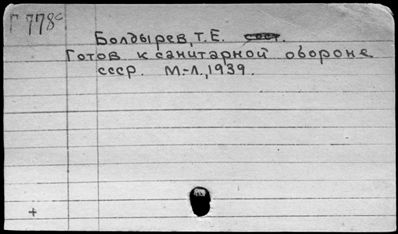 Г 778
Болдырев, Т.Е. сост.
Готов к санитарной обороне
СССР. М.-Л., 1939.